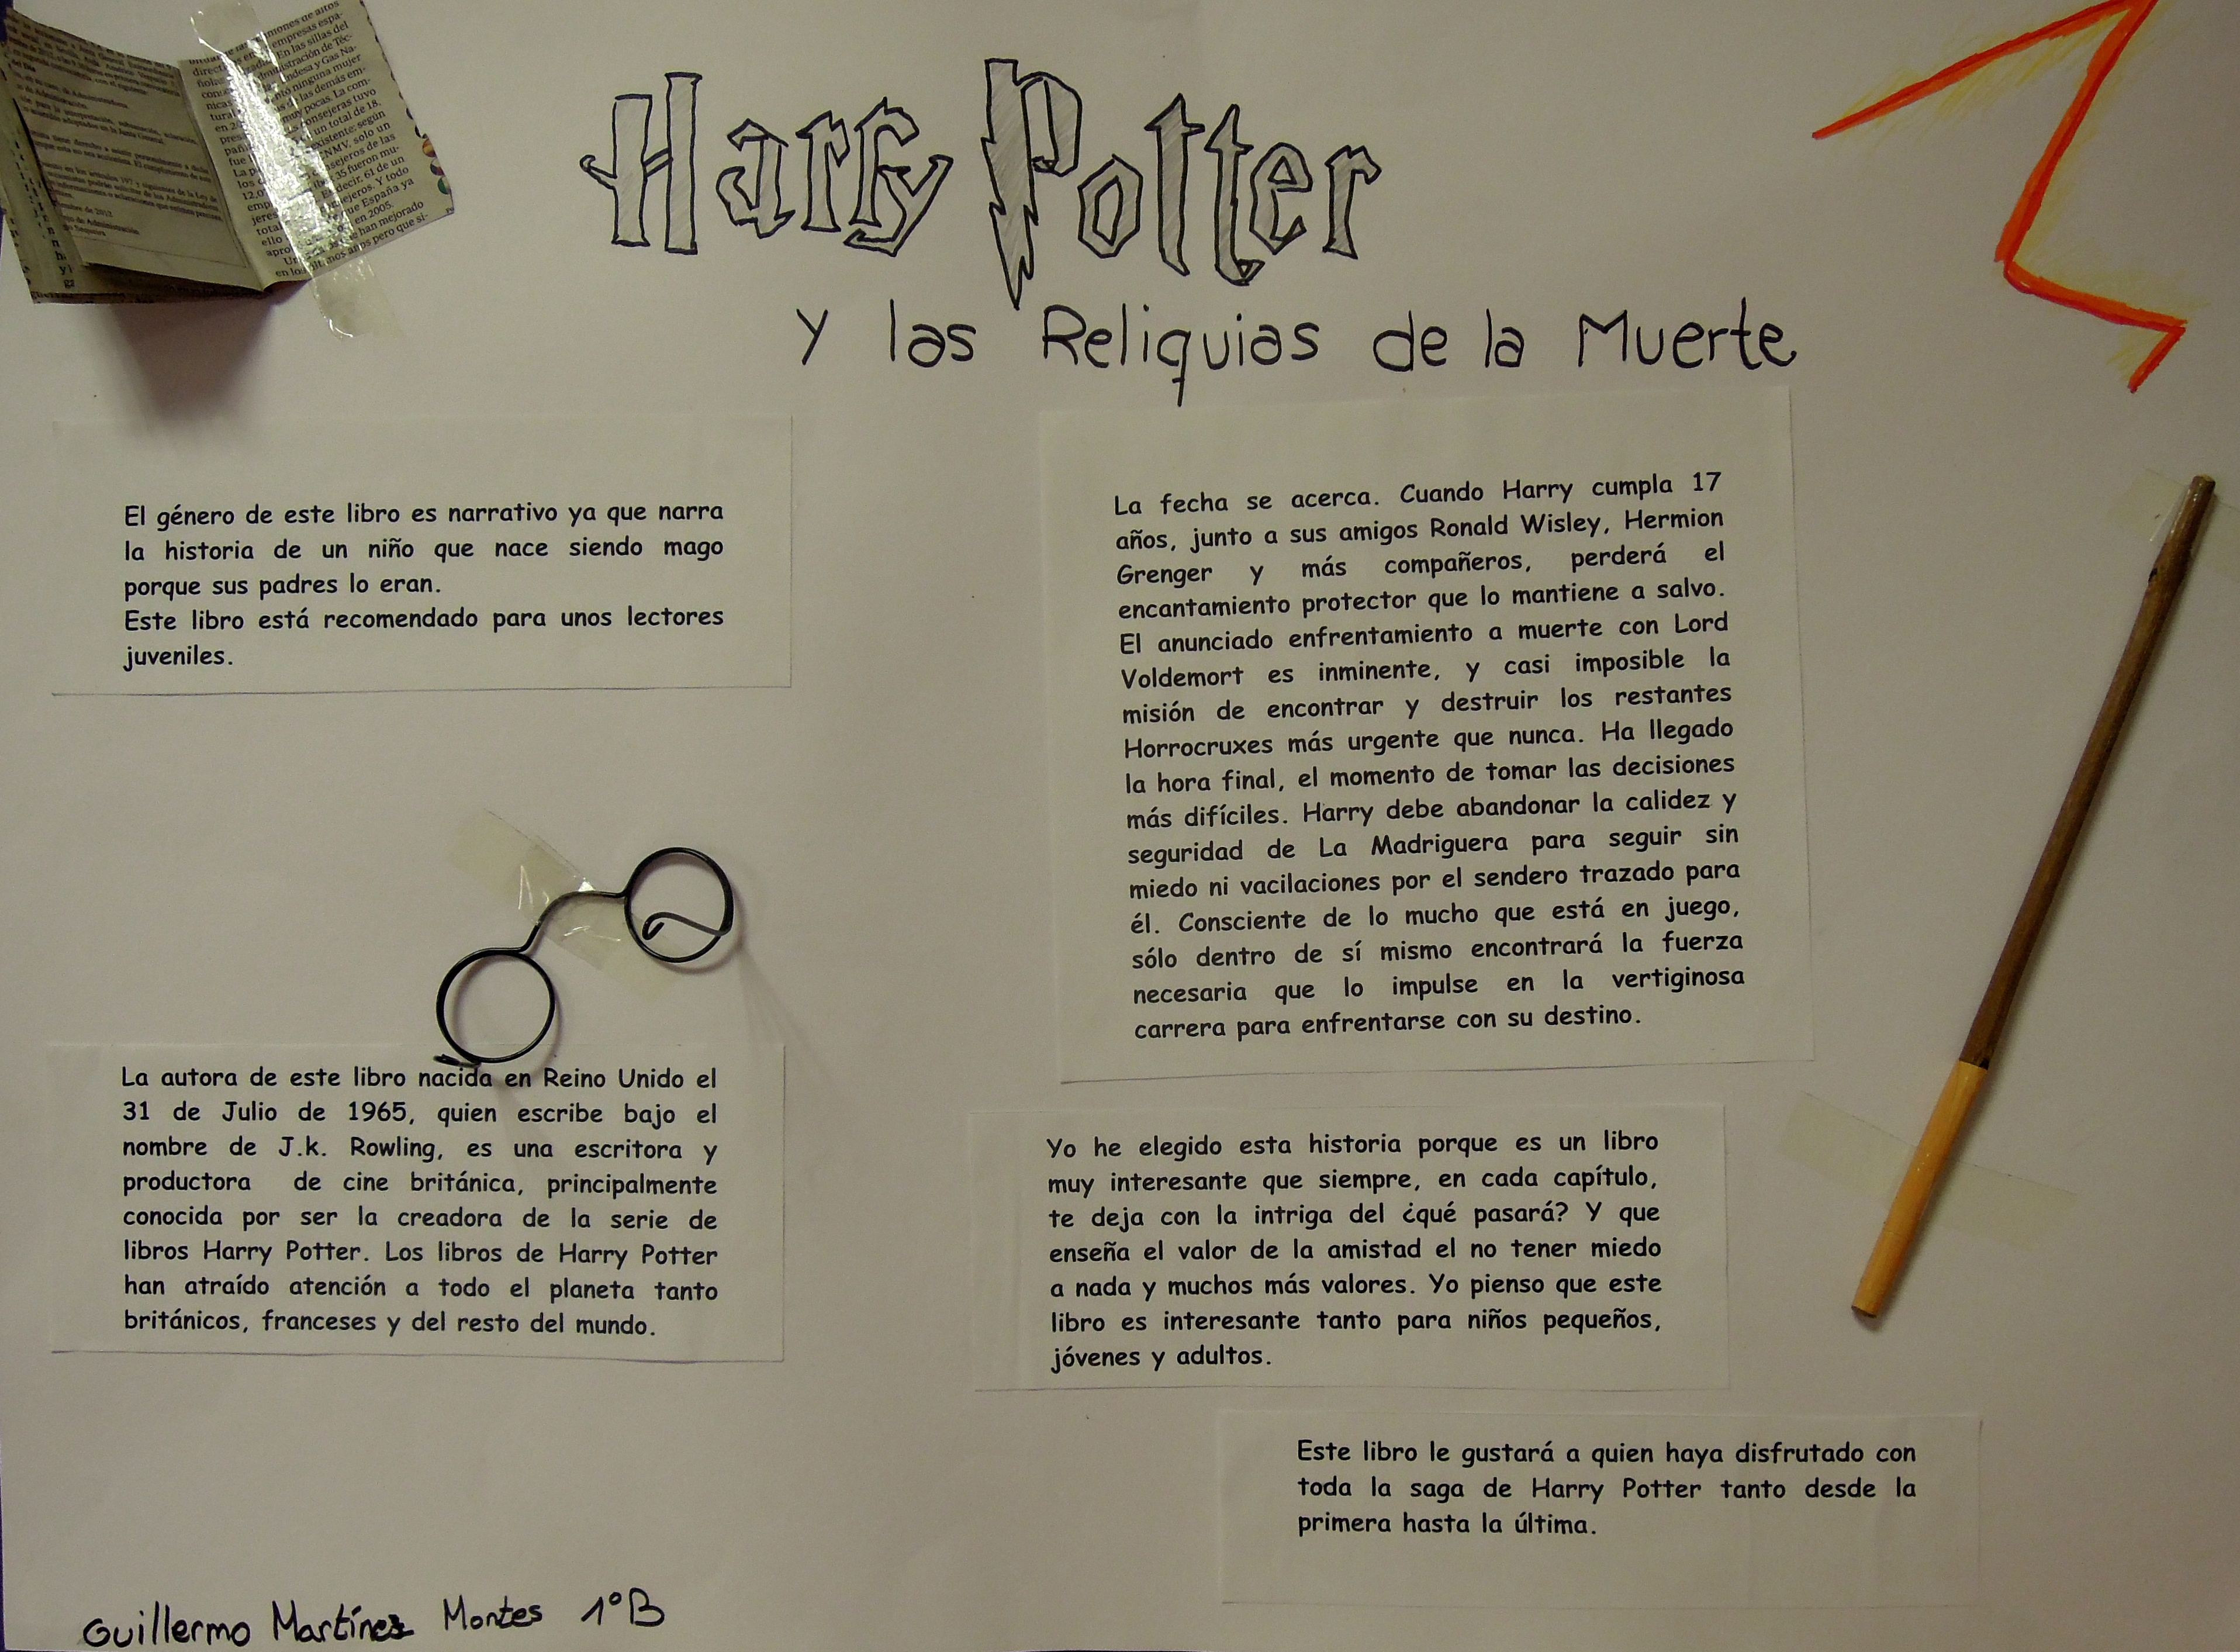 Harry Potter
y las Reliquias de la Muerte
El género de este libro es narrativo ya que narra
la historia de un niño que nace siendo mago
porque sus padres lo eran.
Este libro está recomendado para unos lectores
juveniles.
La autora de este libro nacida en Reino Unido el
31 de Julio de 1965, quien escribe bajo el
nombre de J.k. Rowling, es una escritora y
productora de cine británica, principalmente
conocida por ser la creadora de la serie de
libros Harry Potter. Los libros de Harry Potter
han atraído atención a todo el planeta tanto
británicos, franceses y del resto del mundo.
La fecha se acerca. Cuando Harry cumpla 17
años, junto a sus amigos Ronald Wisley, Hermion
Grenger y más compañeros, perderá el
encantamiento protector que lo mantiene a salvo.
El anunciado enfrentamiento a muerte con Lord
Voldemort es inminente, y casi imposible la
misión de encontrar y destruir los restantes
Horrocruxes más urgente que nunca. Ha llegado
la hora final, el momento de tomar las decisiones
más difíciles. Harry debe abandonar la calidez y
seguridad de La Madriguera para seguir sin
miedo ni vacilaciones por el sendero trazado para
él. Consciente de lo mucho que está en juego,
sólo dentro de sí mismo encontrará la fuerza
necesaria que lo impulse en la vertiginosa
carrera para enfrentarse con su destino.
Yo he elegido esta historia porque es un libro
muy interesante que siempre, en cada capítulo,
te deja con la intriga del ¿qué pasará? Y que
enseña el valor de la amistad el no tener miedo
a nada y muchos más valores. Yo pienso que este
libro es interesante tanto para niños pequeños,
jóvenes y adultos.
Este libro le gustará a quien haya disfrutado con
toda la saga de Harry Potter tanto desde la
primera hasta la última.
Guillermo Martínez Montes 1ºB